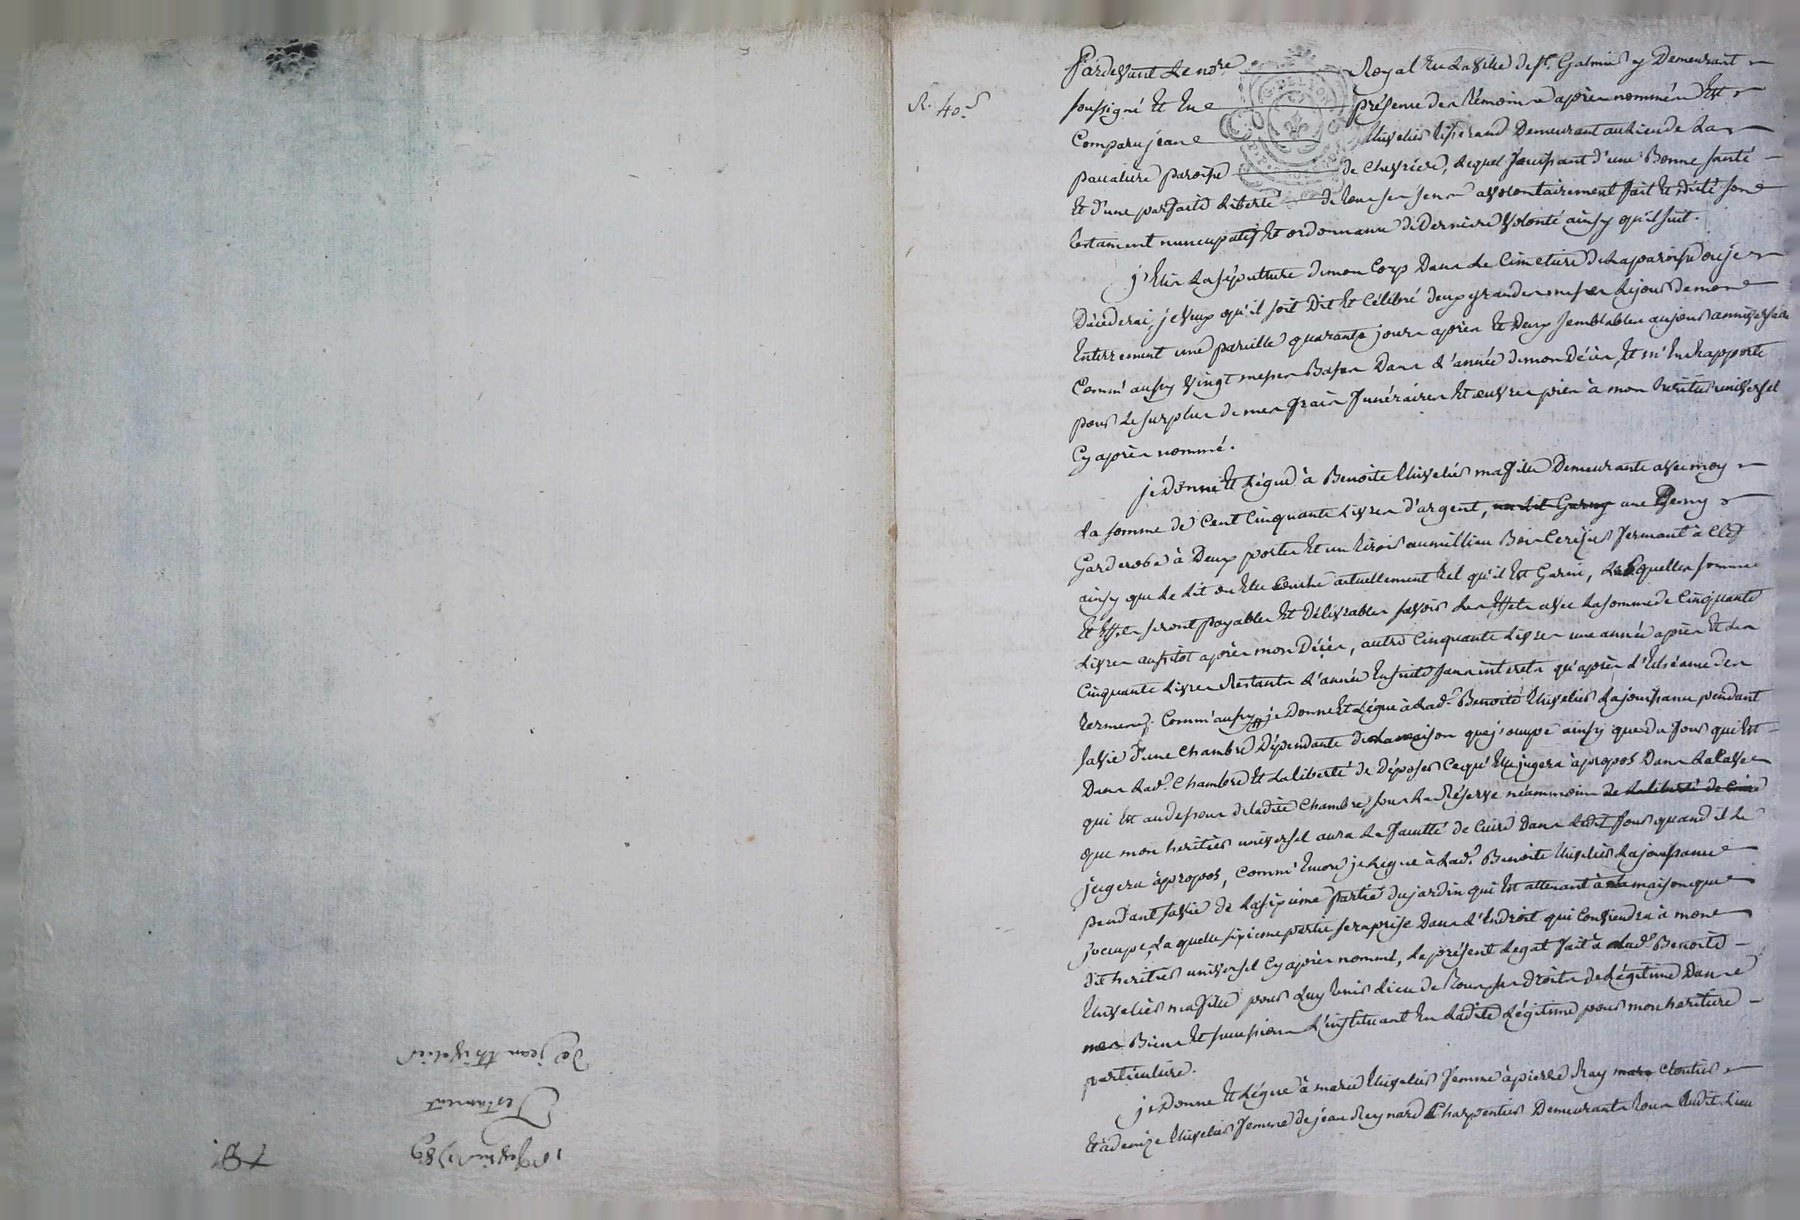 R. 40 s
Pardevant Le no.re Royal En La ville de st. Galmier y Demeurant
soussigné Et En présence des témoins après nommés Est
Comparu jean thivelier tisserand Demeurant au Lieu de La
paroisse de Chevrières, Lequel jouissant d'une Bonne santé
Et d'une parfaite Liberté de tous ses sens a volontairement fait Et dicté son
testament nuncupatif Et ordonnance de Dernière volonté ainsy qu'il suit.
j'Elis La sépulture de mon Corps Dans Le Cimetière de La paroisse ou je
Décéderai, je veux qu'il soit Dit Et Célébré deux grandes messes Le jour de mon
Enterrement une pareille quarante jours après Et Deux semblables au jour anniversaire
Comm'aussy vingt messes Basses Dans L'année de mon Décès, Et m'En Rapporte
pour Le surplus de mes frais funéraires Et œuvres pies à mon héritier universel
Cy après nommé.
je Donne Et Lègue à Benoite thivelier ma fille Demeurante avec moy
La somme de Cent Cinquante Livres d'argent, un Lit Garny une
Garderobe à Deux portes Et un tiroir au millieu Bois Cerisier fermant à Clef
ainsy que Le Lit ou Elle Couche actuellement tel qu'il Est Garni, Lesquelles somme
Et Effets seront payables Et Délivrables savoir Les Effets avec La somme de Cinquante
Livres aussitot après mon Décès, autre Cinquante Livres une année après Et Les
Cinquante Livres Restants L'année Ensuite sans interets qu'après L'Echéance des
termes. Comm'aussy je Donne Et Lègue à Lad.e Benoite thivelier La jouissance pendant
sa vie d'une Chambre Dépendante de La maison que j'occupe ainsy que du four qui Est
Dans Lad.e Chambre Et La liberté de Déposer Ce qu'Elle jugera àpropos Dans La Cave
qui Est au dessous de ladite Chambre, sous La Réserve néammoins de La liberté de Cuire
que mon héritier universel aura La faculté de Cuire Dans Ledit four quand il Le
jugera àpropos, Comm'Encore je Lègue à Lad.e Benoite thivelier La jouissance
pendant sa vie de La sixième partie du jardin qui Est attenant à La maison que
j'occupe, La quelle sixième partie sera prise Dans L'Endroit qui Conviendra à mon
dit héritier universel Cy après nommé, Le présent Legat fait à Lad.e Benoite
thivelier ma fille pour Luy tenir Lieu de tous ses droits de Légitime Dans
mes Biens Et succession L'instituant En Ladite Légitime pour mon héritière
particulière.
je Donne Et Lègue à marie thivelier femme à pierre Ray Cloutier
Et à denize thivelier femme de jean Reynard Charpentier Demeurants tous audit Lieu
1789
Testament
De jean thivelier